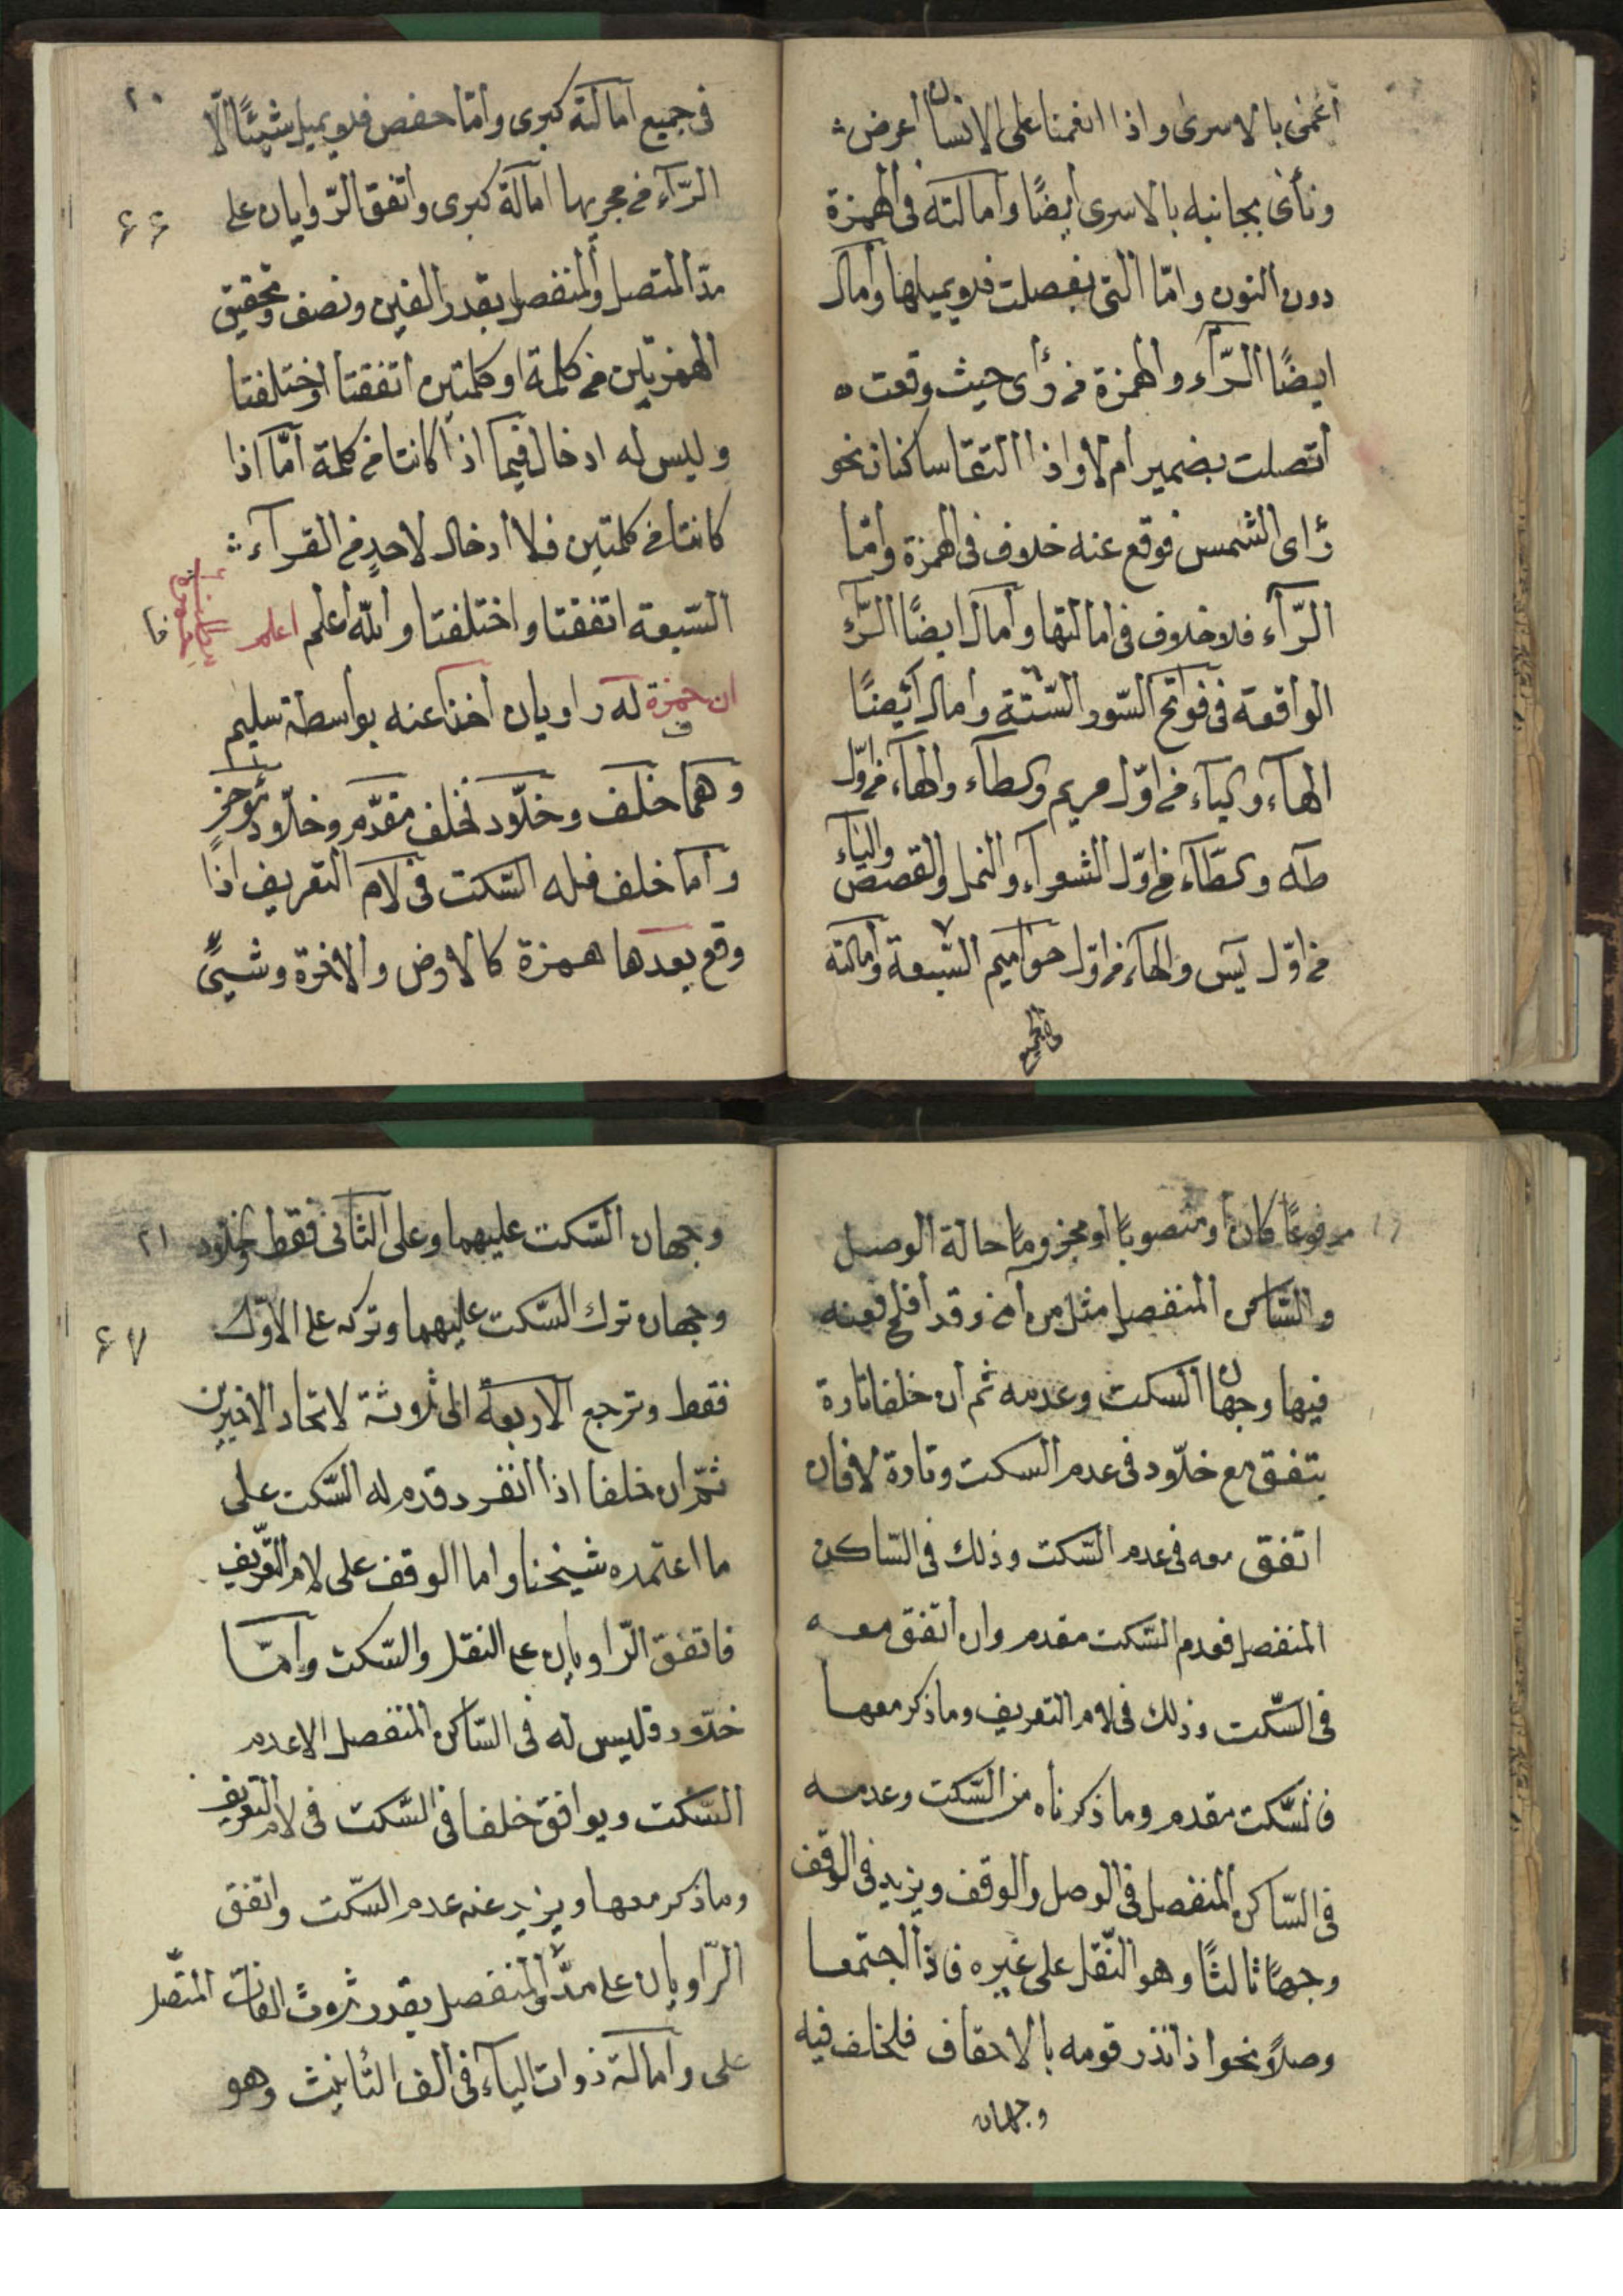 أعمى بالاسرى واذا انعمنا على الانسان أعرض
ونأى بجانبه بالاسرى ايضًا وامالته فى الهمزة
دون النون وامّا التى بفصلت فلا يميلها وأمال
ايضًا الرّآء والهمزة فى رأى حيث وقعت
أتصلت بضمير أم لا واذا التقا ساكنان نحو
رأى الشمس فوقع عنه خلاف فى الهمزة وامّا
الرّآء فلا خلاف فى امالتها وأمال ايضًا الرّآء
الواقعة فى فواتح السّور السّتة وأمال أيضًا
الهآء والياء فى اوّل مريم والطآء والهآء فى اوّل
طه والطّآء فى اوّل الشعرآء والنمل والقصص والياء
فى اوّل يس والحآء فى اوّل حواميم السّبعة وامالته
فى الجميع
٢٠
فى جميع امالته كبرى وأمّا حفص فلا يميل شيئًا الّا
الرّآء فى مجريها امالة كبرى واتفق الرّاويان على
٦٦
مدّ المتصل والمنفصل بقدر الفين ونصف وتحقيق
الهمزتين فى كلمة او كلمتين اتفقتا او اختلفتا
وليس له ادخال فيما اذا كانتا فى كلمة امّا اذا
كانتا فى كلمتين فلا ادخال لاحدٍ فى القرآء
السّبعة اتفقتا واختلفتا والله أعلم اعلم
ان حمزة له راويان أخذا عنه بواسطة سليم
وهما خلف وخلّاد فخلف مقدّم وخلّاد مؤخر
وأما خلف فله السّكت فى لام التعريف اذا
وقع بعدها همزة كالارض والاخرة وشيئ
مرفوعًا كان أو منصوبًا او مجزومًا حالة الوصل
والسّاكن المنفصل مثل من آمن وقد أفلح فعنه
فيها وجهان السكت وعدمه ثم ان خلفا تارة
يتفق مع خلّاد فى عدم السكت وتارة لا فان
اتفق معه فى عدم السّكت وذلك فى السّاكن
المنفصل فعدم السّكت مقدم وان اتفق معه
فى السّكت وذلك فى لام التعريف وما ذكر معها
فالسّكت مقدم وما ذكرناه من السّكت وعدمه
فى السّاكن المنفصل فى الوصل والوقف ويزيد فى الوقف
وجهًا ثالثًا وهو النّقل على غيره فاذا اجتمعا
وصلًا نحو اذ انذر قومه بالاحقاف فلخلف فيه
وجهان
وجهان السّكت عليهما وعلى الثّانى فقط ولخلّاد
٢١
وجهان ترك السّكت عليهما وتركه على الاوّل
٦٧
فقط وترجع الاربعة الى ثلاثة لاتحاد الاخيرين
ثمّ ان خلفا اذا انفرد قدم له السّكت على
ما اعتمده شيخنا واما الوقف على لام التعريف
فاتفق الرّاويان على النقل والسّكت وأمّا
خلّاد فليس له فى السّاكن المنفصل الا عدم
السّكت ويوافق خلفا فى السّكت فى لام التعريف
وما ذكر معها ويزيد عنه عدم السّكت واتفق
الرّاويان على مدّ المنفصل بقدر ثلاث الفات المتّصل
على وأمالة ذوات الياء فى الف التّأنيث وهو